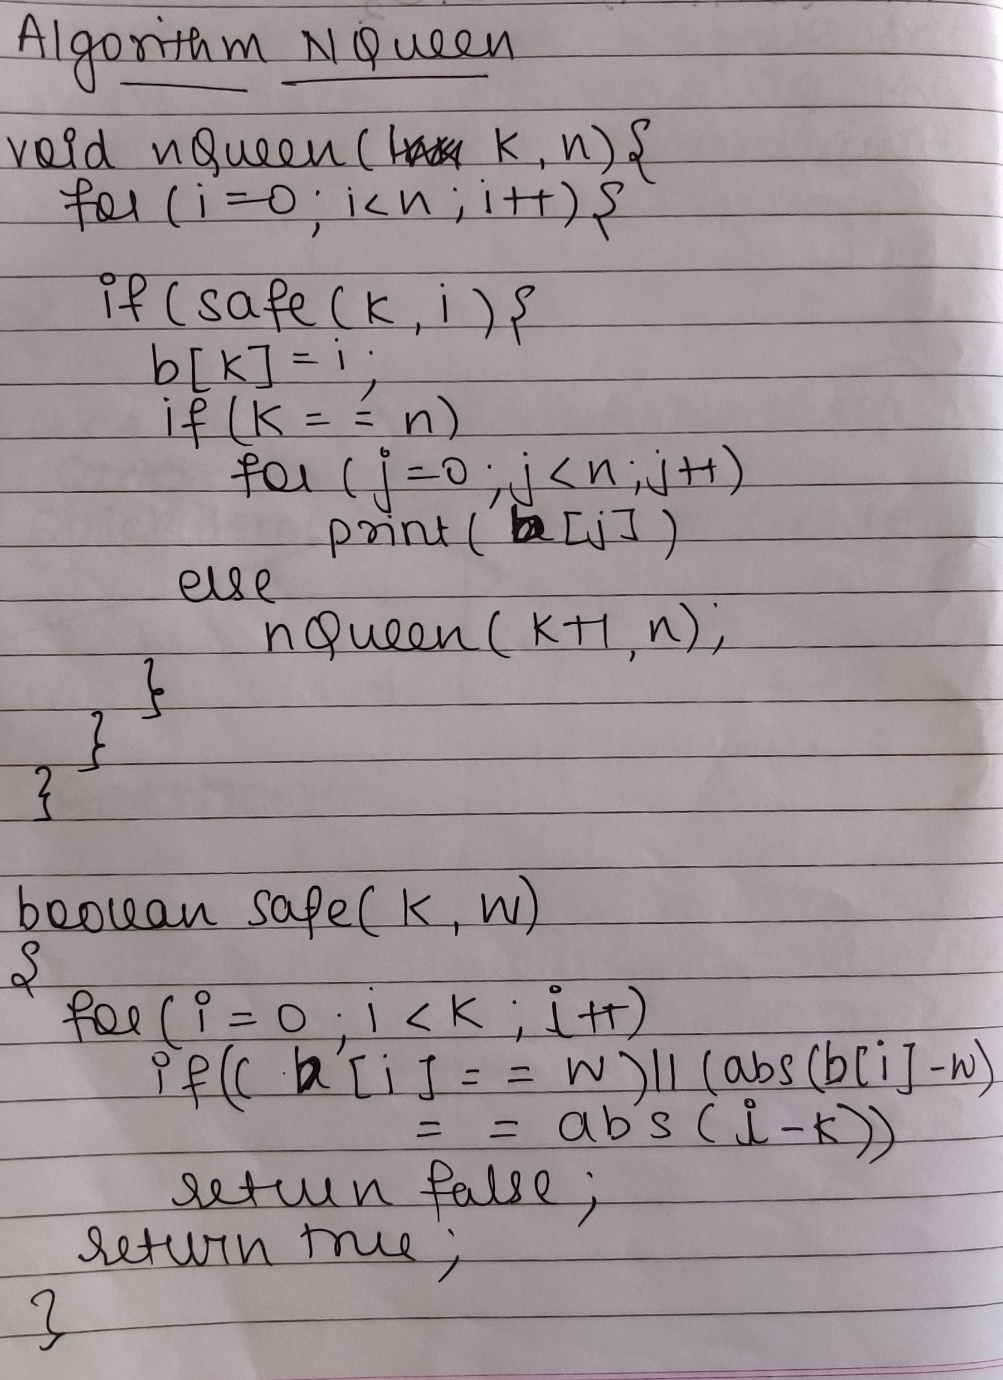 Algorithm NQueen
void nQueen( k, n){
for (i=0; i<n; i++){
if(safe(k, i){
b[k]=i;
if(k==n)
for (j=0; j<n; j++)
print(b[j])
else
nQueen(k+1, n);
}
}
}
boolean safe(k, w)
{
for(i=0; i<k; i++)
if(( b[i]==w)||(abs(b[i]-w)
== abs(i-k))
return false;
return true;
}